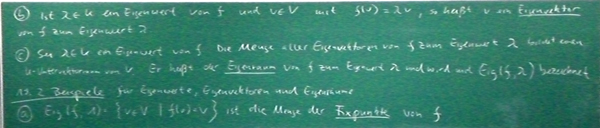 (b) Ist λ∈K ein Eigenwert von f und v∈V mit f(v) = λv, so heißt v ein Eigenvektor
von f zum Eigenwert λ
(c) Sei λ∈K ein Eigenwert von f. Die Menge aller Eigenvektoren von f zum Eigenwert λ bildet einen
K-Untervektorraum von V. Er heißt der Eigenraum von f zum Eigenwert λ und wird mit Eig(f, λ) bezeichnet
2 Beispiele für Eigenwerte, Eigenvektoren und Eigenräume
(a) Eig(f, 1) = {v∈V | f(v)=v} ist die Menge der Fixpunkte von f